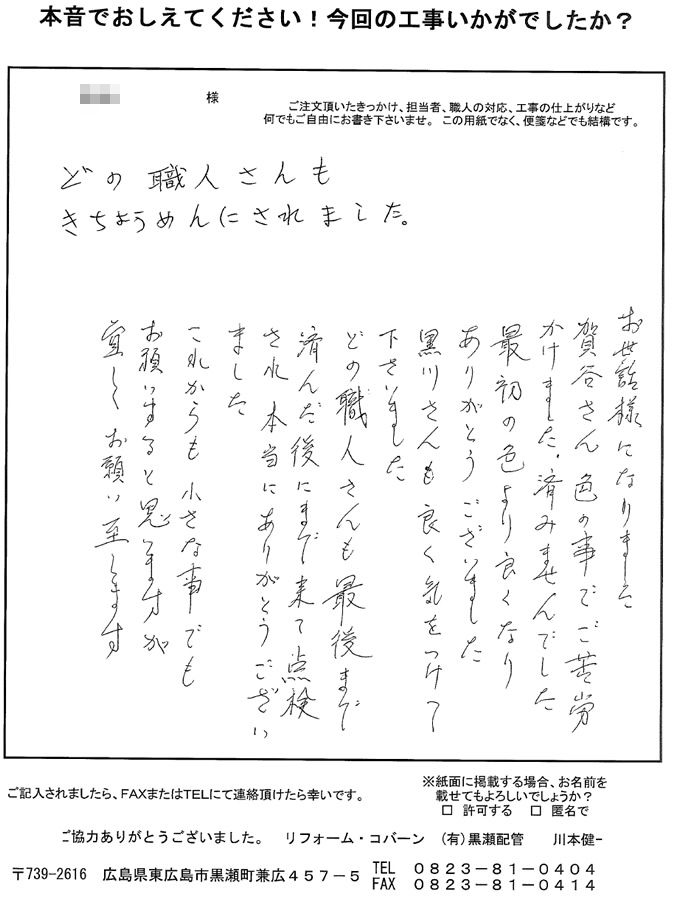 本音でおしえてください！今回の工事いかがでしたか？
様
ご注文頂いたきっかけ、担当者、職人の対応、工事の仕上がりなど
何でもご自由にお書き下さいませ。この用紙でなく、便箋などでも結構です。
どの職人さんも
きちょうめんにされました。
お世話様になりました
賀谷さん色の事でご苦労
かけました.済みませんでした
最初の色より良くなり
ありがとうございました
黒川さんも良く気をつけて
下さいました
どの職人さんも最後まで
済んだ後にまで来て点検
され本当にありがとうござい
ました
これからも小さな事でも
お願いすると思いますが
宜しくお願い至します
ご記入されましたら、FAXまたはTELにて連絡頂けたら幸いです。
※紙面に掲載する場合、お名前を
載せてもよろしいでしょうか？
□ 許可する □ 匿名で
ご協力ありがとうございました。 リフォーム・コバーン （有）黒瀬配管 川本健一
〒739-2616 広島県東広島市黒瀬町兼広４５７－５
TEL ０８２３－８１－０４０４
FAX ０８２３－８１－０４１４